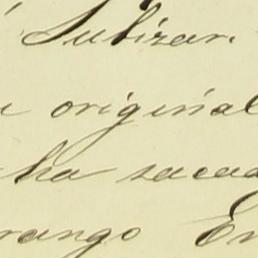 Subizar.
original
ha sacad
rango En